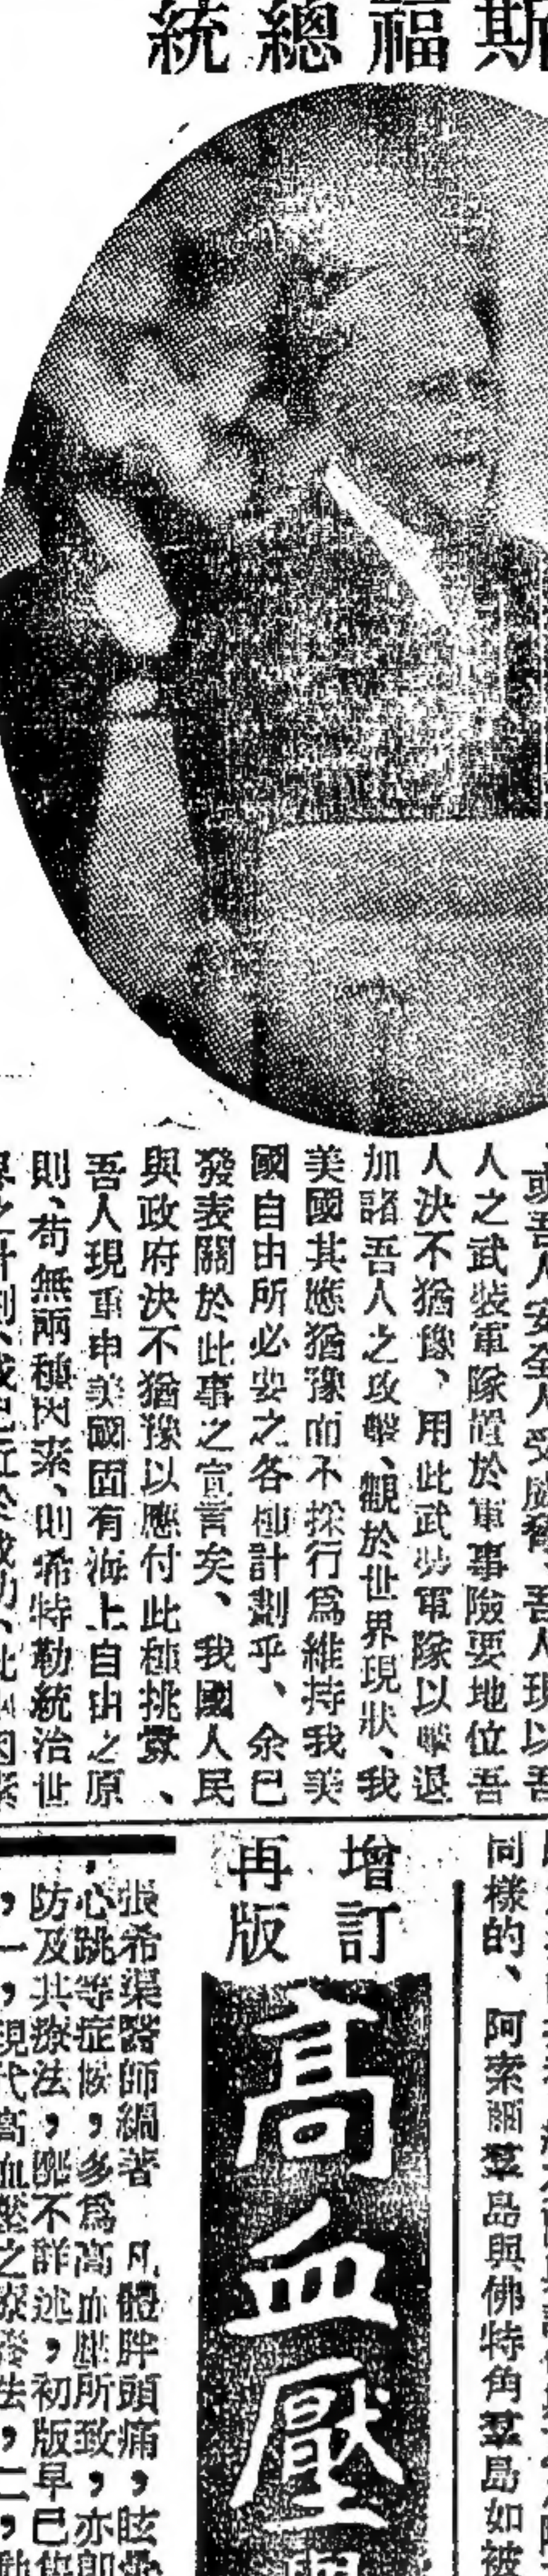 斯福總統
或吾人安全人受威脅、吾人現以吾
人之武裝軍隊置於軍事險要地位吾
人決不猶豫、用此武裝軍隊以擊退
加諸吾人之攻擊、觀於世界現狀、我
美國其應猶豫而不採行爲維持我美
國自由所必要之各種計劃乎、余已
發表關於此事之宣言矣、我國人民
與政府決不猶豫以應付此種挑釁、
吾人現重申美國固有海上自由之原
則、苟無兩種因素、則希特勒統治世
界之計劃、或已近於成功、此
同樣的、阿索爾羣島與佛特角羣島如被
增訂
再版
高血壓
張希渠醫師編著 凡體胖頭痛，眩暈
心跳等症候，多爲高血壓所致，亦即
防及其療法，罔不詳述，初版早已售
，一，現代高血壓之療養法，二，動